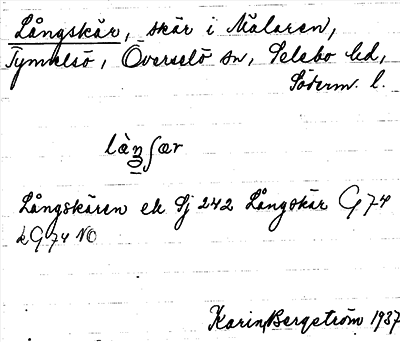 Långskär, skär i Mälaren,
Tynnelsö, Överselö sn, Selebo hd,
Söderm. l.
làŋʃær
Långskären ek Sj 242 Långskär G 74
k G 74 NO
Karin Bergström 1937